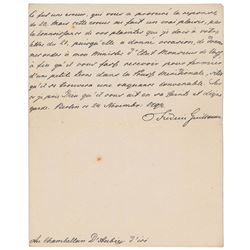 le fait une erreur, qui vous a procuré la réponse
du 22. Mais cette erreur me fait un vrai plaisir, par
la connaissance de vos plaintes que je dois à votre
lettre du 21, puisqu'elle a donné occasion, de
recommander à mon Ministre d'Etat Monsieur de
à fin qu'il vous fasse recevoir pour
d'une petite dans la Prusse Méridionale, dès
qu'il se trouvera une vaquance convenable. Sur
ce je prie Dieu qu'il vous ait en sa sainte et digne
garde. Berlin ce 24 Novembre
Frédéric Guillaume
Au Chambellan D'